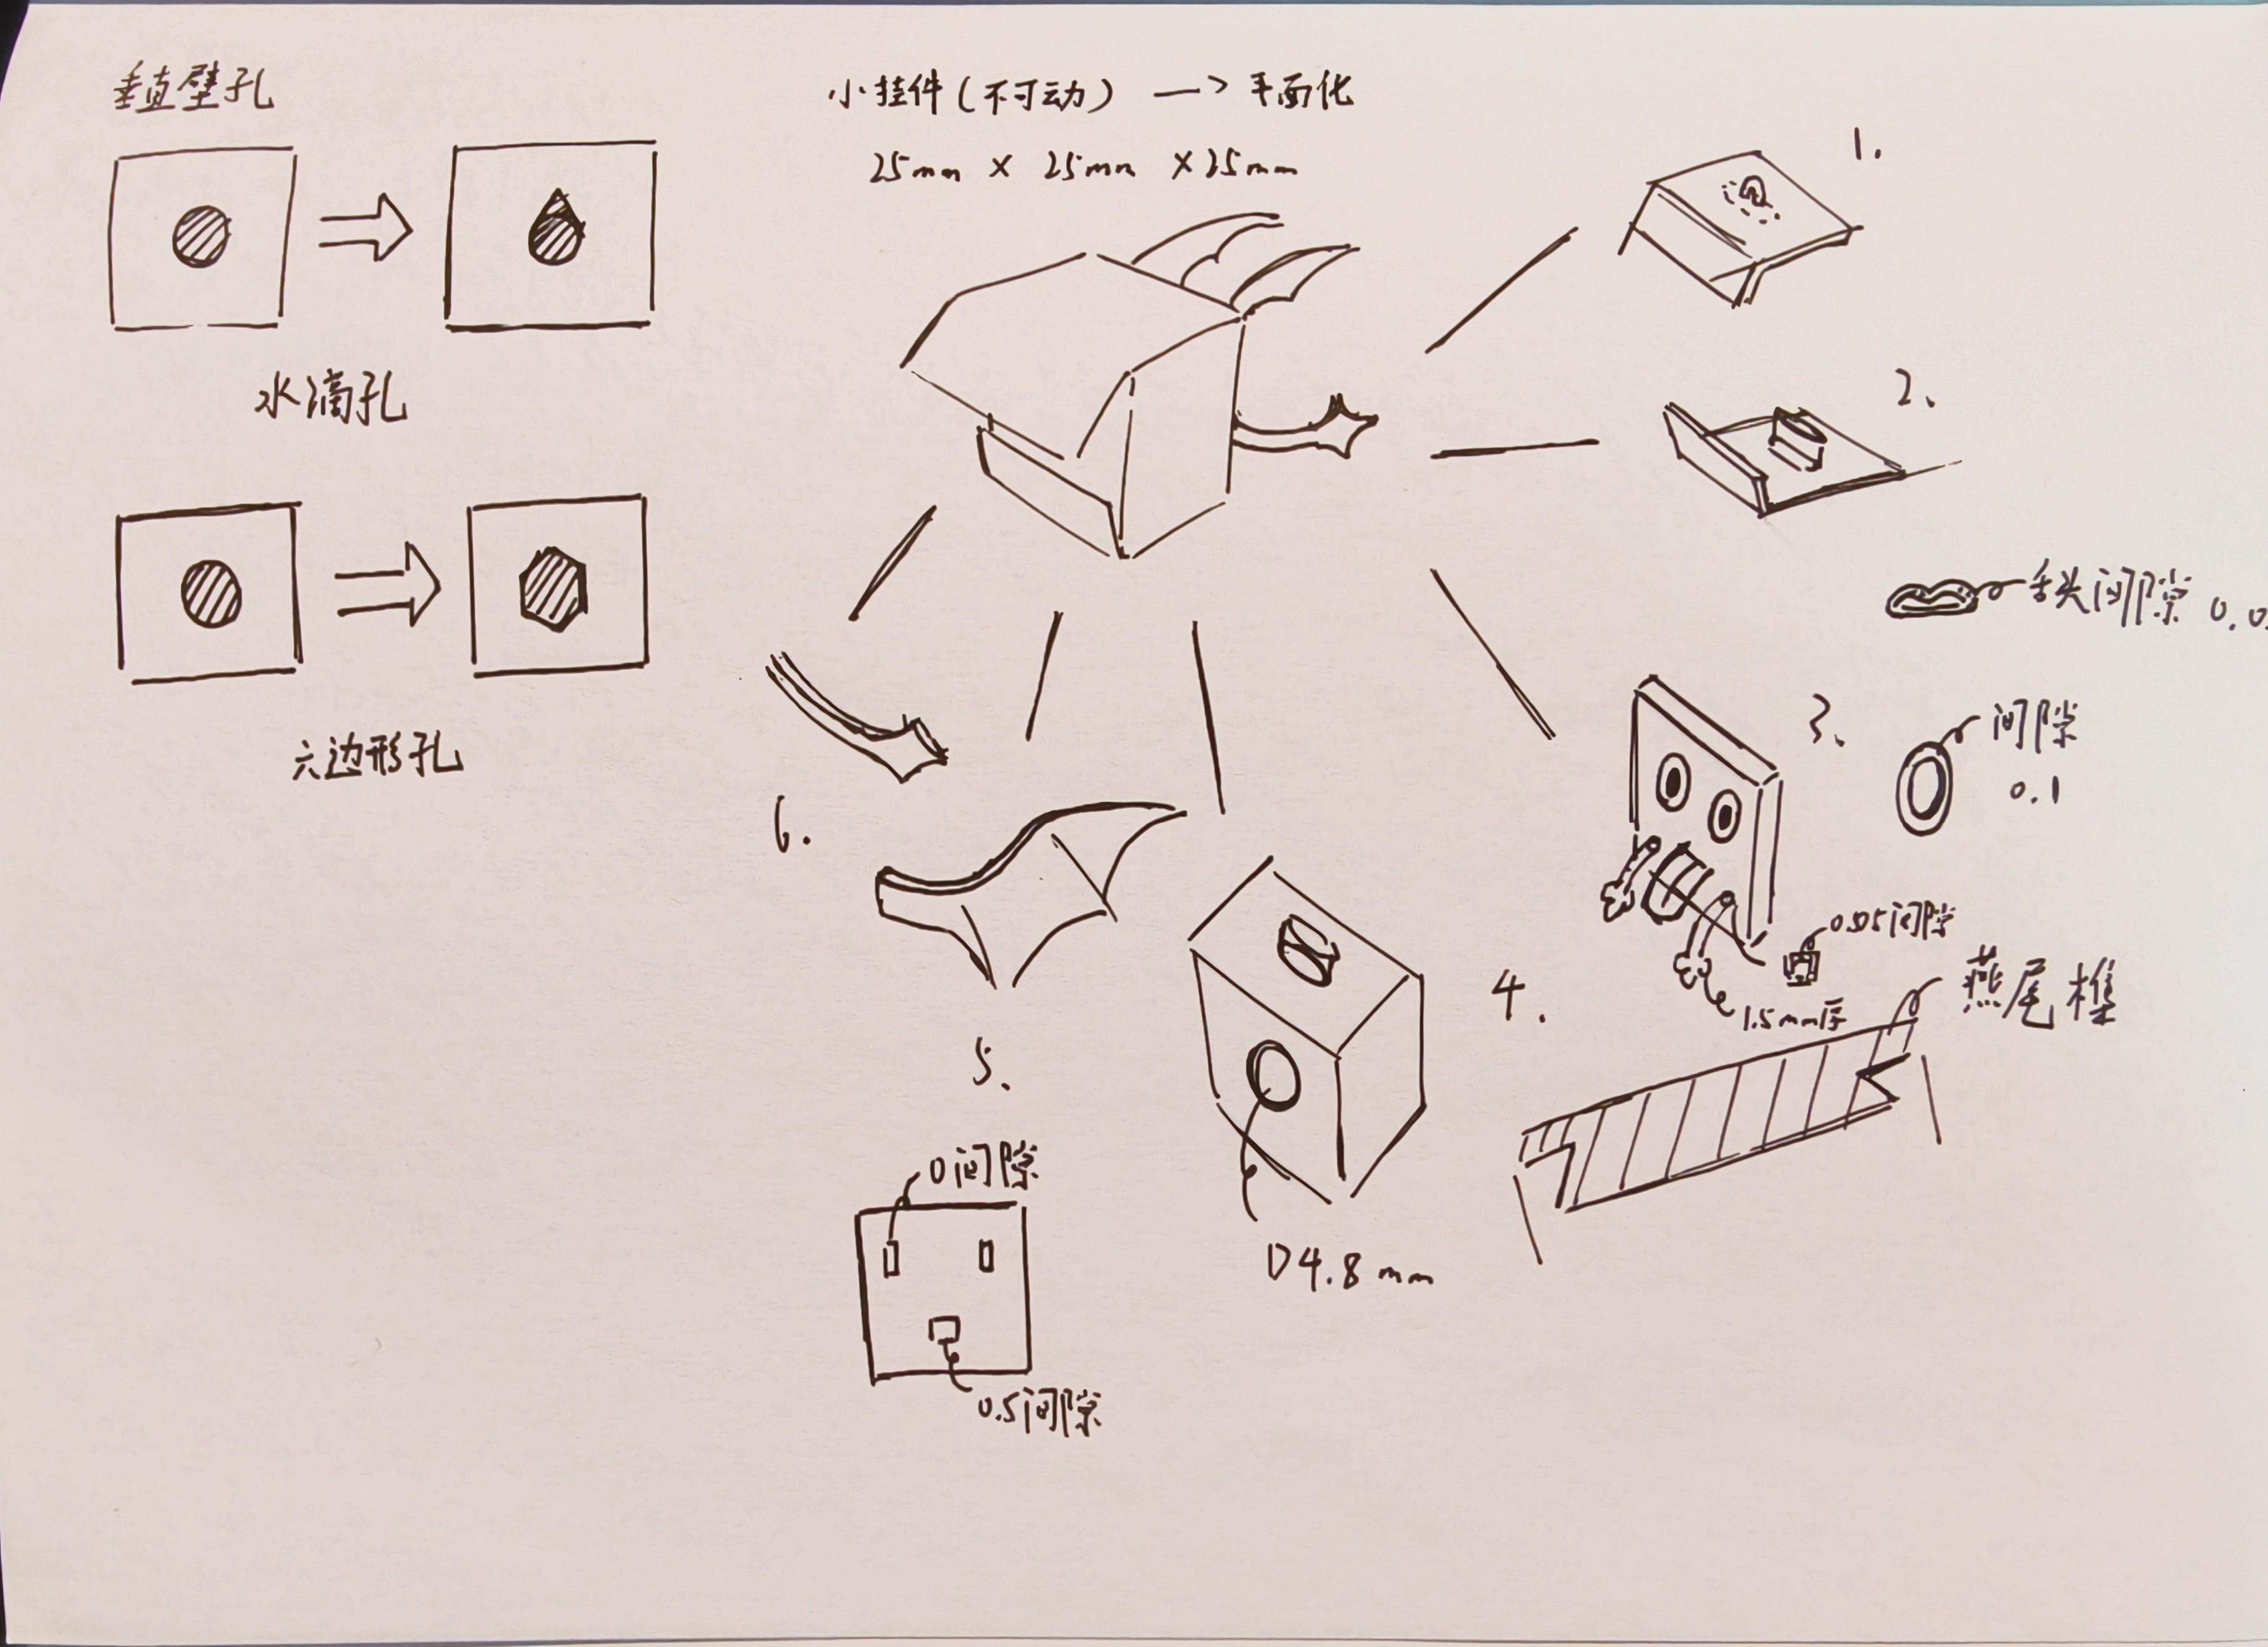 垂直壁孔
水滴孔
六边形孔
小挂件(不可动) —> 平面化
25mm × 25mm × 25mm
1.
2、
舌头间隙 0.0
3、
间隙
0.1
0.05间隙
1.5mm厚
燕尾榫
4.
D4.8mm
5、
6.
0间隙
0.5间隙